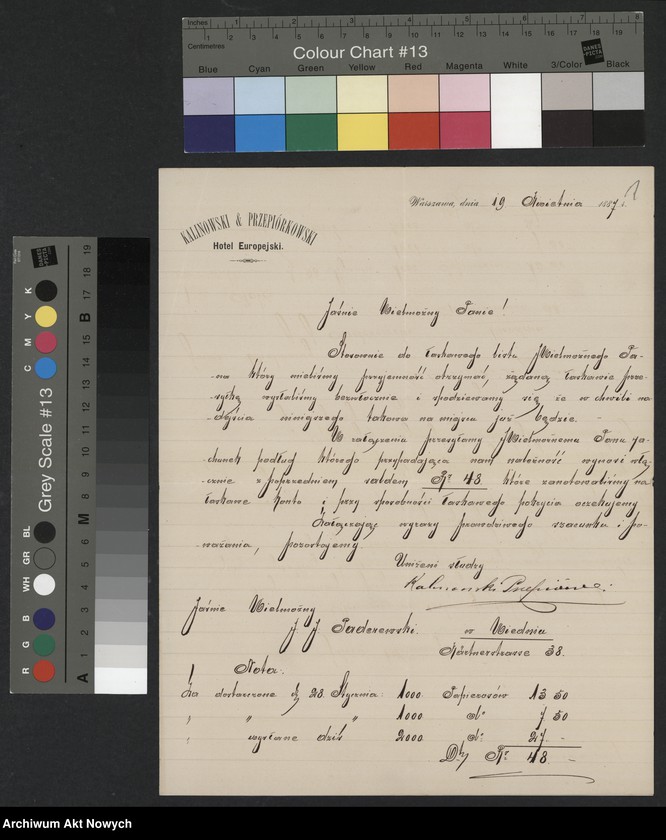 Inches 1 2 3 4 5 6 7 8
Centimetres 1 2 3 4 5 6 7 8 9 10 11 12 13 14 15 16 17 18 19
Colour Chart #13
DANES PICTA
Blue Cyan Green Yellow Red Magenta White 3/Color Black
Grey Scale #13
DANES PICTA
C M Y K
R G B WH GR BL
A 1 2 3 4 5 6 M 8 9 10 11 12 13 14 15 B 17 18 19
Warszawa, dnia 19 Kwietnia 1887 r.
KALINOWSKI & PRZEPIÓRKOWSKI
Hotel Europejski.
Jaśnie Wielmożny Panie!
Stosownie do łaskawego listu JWielmożnego Pa-
-na który mieliśmy przyjemność otrzymać, żądaną łaskawie prze-
syłkę wysłaliśmy bezwłocznie i spodziewamy się że w chwili na-
dejścia niniejszego takowa na miejscu już będzie. -
W załączeniu przesyłamy JWielmożnemu Panu ra-
chunek podług którego przypadająca nam należność wynosi włą-
cznie z poprzedniem saldem Rs 48. które zanotowaliśmy na
łaskawe konto i przy sposobności łaskawego pokrycia oczekujemy
Załączając wyrazy prawdziwego szacunku i po-
ważania, pozostajemy
Uniżeni słudzy
Kalinowski Przepiórkowski
Jaśnie Wielmożny
J. J. Paderewski. w Wiedniu
Kärtnerstrasse 38.
Nota.
Za dostarczone 28. Stycznia: 1000 Papierosów 13 50
" " " 1000 d° 7 50
" wysłane dziś 2000 d° 27 -
Rs 48. -
Archiwum Akt Nowych